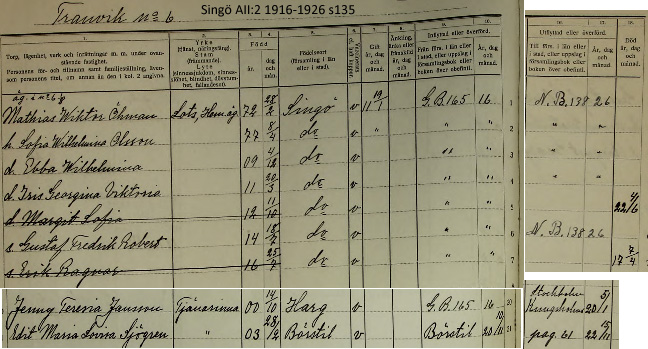 Tranvik no 6
Singö AII:2 1916-1926 s135
1. Torp, lägenhet, verk och inrättningar m. m. under ovanstående fastighet. Personens för- och tillnamn samt familjeställning, även-som personens plats, om annan än den i kol. 2 angivna.
2. Yrke
3. 4. Född år, dag och månad.
5. Födelseort (församling i län eller i stad).
7. Gift, år, dag och månad.
9. Inflyttad eller överförd. Från förs. i län eller i stad, uppslag i församlingsbok eller boken över obefintl. 10. År, dag och månad.
Utflyttad eller överförd. Till förs. i län eller i stad, uppslag i församlingsbok eller boken över obefintl. År, dag och månad. Död år, dag och månad.
äg. i no 6
Mathias Wiktor Öhman Lots, Hem.äg. 72 28/2 Singö v 11 19/1 G.B.165 16 1 N.B.138 26
h. Sofia Wilhelmina Olsson 77 8/4 do v " " " 2 " "
d. Ebba Wilhelmina 09 4/12 do " " 3 " "
d. Iris Georgina Viktoria 11 20/3 do " " 4 " "
d. Margit Sofia 12 11/10 do v " " 5 22 4/6
s. Gustaf Fredrik Robert 14 18/7 do v " " 6 N.B.138 26
s. Erik Ragnar 16 25/7 do v " " 7 17 7/4
Jenny Teresia Jansson Tjänarinna 00 14/10 Harg G.B.165 16 20 Stockholm Kungsholm 20 5/1
Edit Maria Lovisa Sjögren " 03 28/12 Börstil v Börstil 20 21 pag. 61 22 15/11